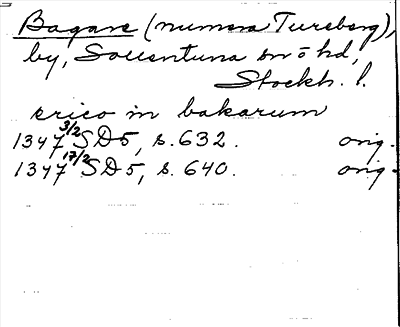 Bagare (numera Tureberg),
by, Sollentuna sn o hd,
Stockh. l.
erico in bakarum
1347 3/2 SD5, s. 632. orig.
1347 17/2 SD5, s. 640. orig.